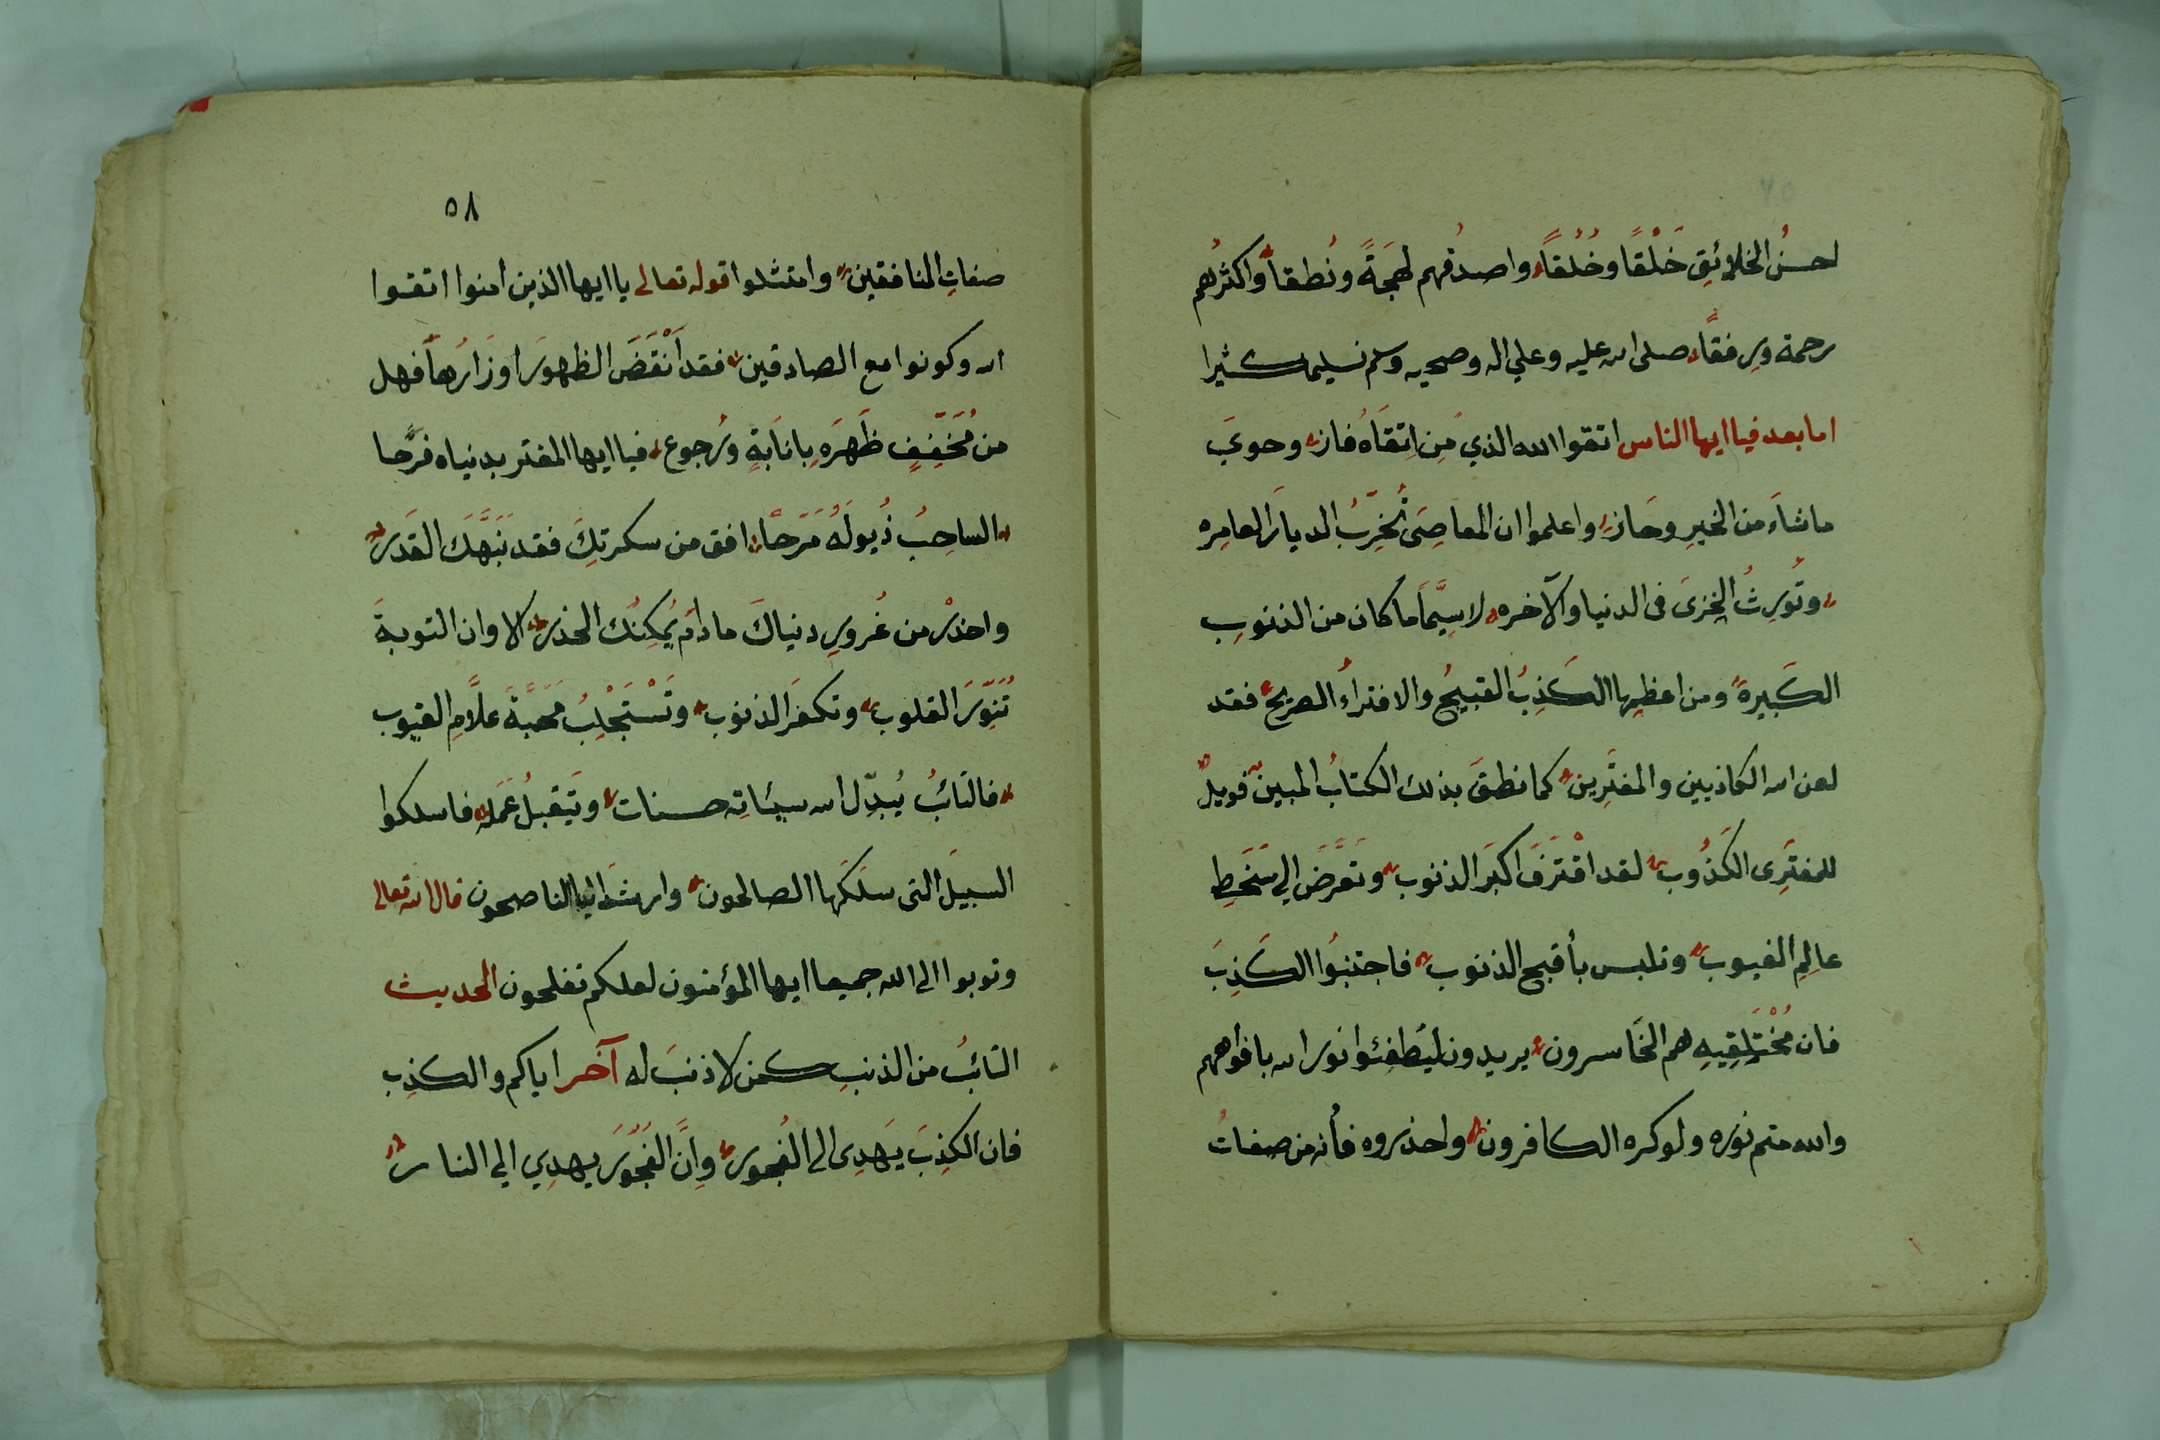 احسنُ الخلائِقِ خَلْقًا وخُلُقاً واصدُقهم لهجَةً ونُطقاً واكثرُهم
رحمة ورِفقًا صلى الله عليه وعلي اله وصحبه وسلم تسليما كثيرا
اما بعد فيا ايها الناس اتقوا الله الذي مَنِ اتِقَاهُ فاز وحويَ
ما شاَء من الخيرِ وحَاز واعلموا ان المعاصِىَ تُخرِّبُ الديارَ العامِره
وتُورِثُ الخِزىَ فى الدنيا والآخره لا سِيَّمَا ما كان من الذنوبِ
الكَبيرة ومن اعظمِها الكَذِبُ القبيحُ والافتراءُ الصريح فقد
لعن الله الكاذبين والمفتَرِين كما نطقَ بذلك الكتابُ المبين فويلٌ
للمفتَرِى الكَذُوب لقد اقْتَرَفَ اكبَر الذنوب وتَعَرَّضَ الي سَخَطِ
عالِمِ الغيوب وتلبس بأقبح الذنوب فاجتنبُوا الكَذِبَ
فان مُخْتَلِقِيهِ هم الخَاسرون يريدون ليُطفئوا نور الله بافواههم
والله متم نوره ولو كره الكافرون واحذروه فأنه من صفاتُ
٥٨
صفاتِ المنافقين وامتثلوا قوله تعالى يا ايها الذين امنوا اتقوا
الله وكونوا مع الصادقين فقد اَنْقَضَ الظهورَ اوزَارُها فهل
من مُخَفِّفٍ ظَهرَه بِانَابةٍ ورُجوع فيا ايها المغتر بدنياه فرَحا
الساحِبُ ذُيولَهُ مَرَحًا افق من سكرتِكَ فقد نَبَّهَكَ القَدَر
واحذرْ من غُرورِ دنياكَ ما دَامَ يُمكِنُك الحَذر الا وان التوبةَ
تُنَوِّرَ القلوب وتكفرَ الذنوب وتَسْتَجْلِبُ مَحَبَّةَ علاَّمِ الغيوب
فالتَائبُ يُبدِّل الله سيئاتِه حسنات ويَتقبلُ عَمَله فاسلكوا
السبيلَ التى سلَكَها الصالحون وارشدَ اليها الناصحون قال الله تعالى
وتوبوا الى الله جميعا ايها المؤمنون لعلكم تفلحون الحديث
التائبُ من الذنبِ كمن لا ذنبَ له آخر اياكم والكذِب
فان الكذِبَ يَهدِى الى الفُجور وِانَّ الفُجُورَ يهدِي الي النار